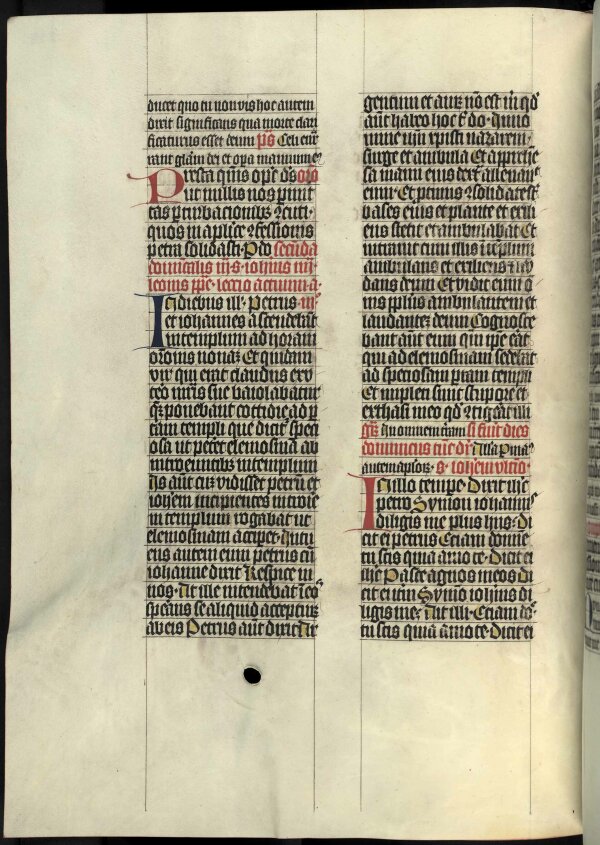 ducet quo tu non vis hoc autem
dixit significans qua morte clari
ficaturus esset deum p̄s Celi enar
rant gl̄am dei et opa manuum eꝰ
Presta qm̄s op̄s ds oro
ut nullis nos pmit
tas pturbacionibꝫ ꝯcuti
quos in aplice ꝯfessionis
petra solidasti P do secunda
Lectio actuum a
In diebus ill Petrus
et iohannes ascendebāt
in templum ad horam
orōnis nonaꝫ Et quidam
vir qui erat claudus ex v
tero mr̄is sue baiolabatur
qꝫ ponebant cottidie ad por
tam templi que dicit speci
osa ut petet elemosinā ab
introeuntibꝫ in templum
Is aut cuꝫ vidisset petrū et
iohem incipientes introire
in templum rogabat ut
elemosinam accipet Intu
ens autem eum petrus cū
iohanne dixit Respice in
nos At ille intendebat ī eos
sperans se aliquid acceptuꝫ
ab eis Petrus aūt dixit Ar
gentum et auꝫ nō est m̄ qd
aūt habeo hoc t̄ do In no
mine ihū xpisti nazareni
surge et ambula Et appreheː
sa manu eius dext̄ alleuauit
eum Et protinus ꝯsolidate st̄
bases eius et plante et exili
ens stetit et ambulabat Et
intrauit cum illis ī templum
ambulans et exiliens et lau
dans deum Et vidit eum oīs
populus ambulantem et
laudanteꝫ deum Cognosce
bant aut eum qui ipe erat
qui ad elemosinam sedebat
ad speciosam portam templi
Et impleti sunt stupore et
exthasi in eo qd ꝯtigerat illi
In omnem terram si fuit dies
dominicus tūc dr̄ Alla
s iohem ultio
In illo tempe Dixit ihc
petro Symon iohannis
diligis me plus hijs Di
cit ei petrus Eciam domie
tu scis quia amo te Dicit ei
ihc Pasce agnos meos Di
cit ei itm Symo iohīs di
ligis me Ait illi Eciam do
tu scis quia amo te Dicit ei